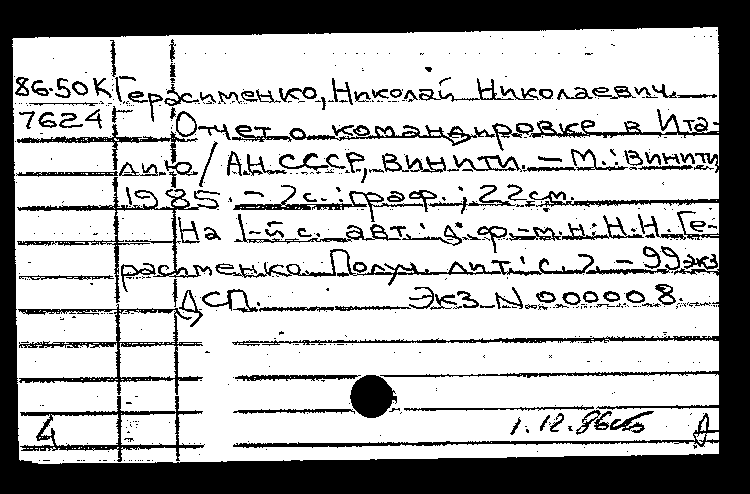 86-50К Герасименко, Николай Николаевич.
7624 Отчет о командировке в Ита-
лию / АН СССР, ВИНИТИ. — М.: ВИНИТИ,
1985. — 7 с.: граф.; 22 см.
На 1-й с. авт.: д. ф.-м. н. Н. Н. Ге-
расименко. Получ. лит.: с. 7. — 99 экз
ДСП. Экз N 000008.
4 1.12.86